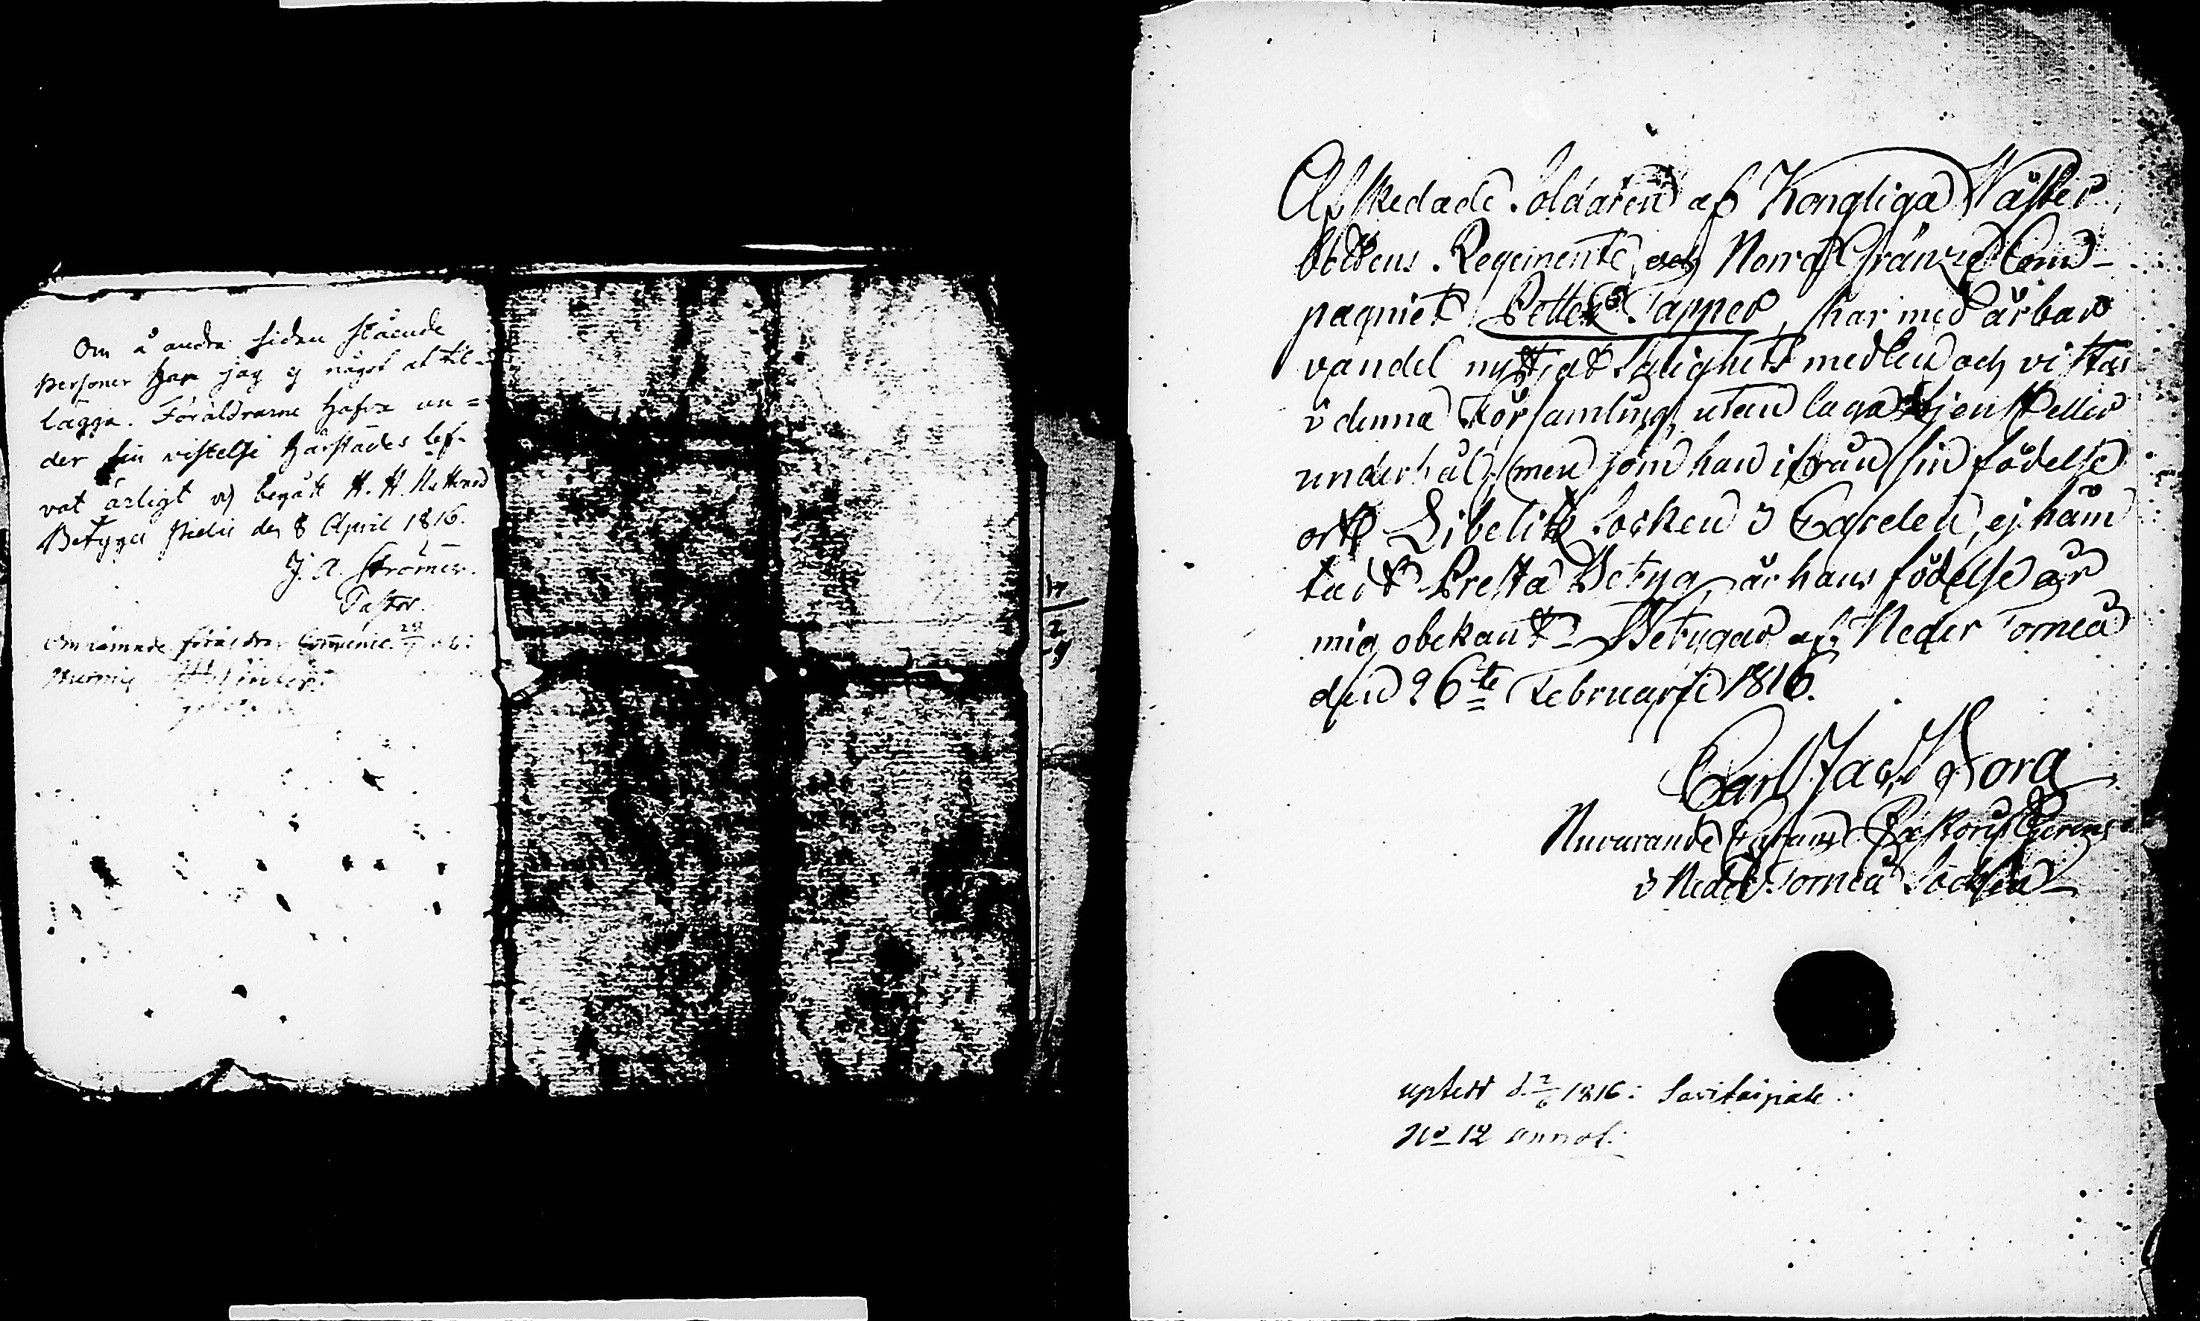 Om å andra sidan stående
personer har jag ej något at til-
lägga. Föräldrarne hafva un-
der sin vistelse härstädes lef-
vat ärligt och begått H. H. Nattvard
Betygar Pielis den 8 April 1816.
J. A. Strömer.
Pastor.
Omnämnde föräldrar Commúnic.
Afskedade Soldaten af Kongliga Väster
bottens Regimente och Norra Gränze Com-
pagniet Petter Tapper, har med ärbar
vandel nyttjat Salighets medlen och vistas
i denna Församling, utan laga tjenst eller
underhåll, men som han ifrån sin födelse
ort Libelitz Socken i Carelen, ej häm
tadt Presta Betyg, är hans födelse år
mig obekant. Betygar af Neder Torneå
den 26te Februarii 1816.
Carl Jac. Borg
Nuvarande Pastoris
i Neder Torneå Socken
uptedt d. 2/6 1816: Savitaipale
No 12 annot.